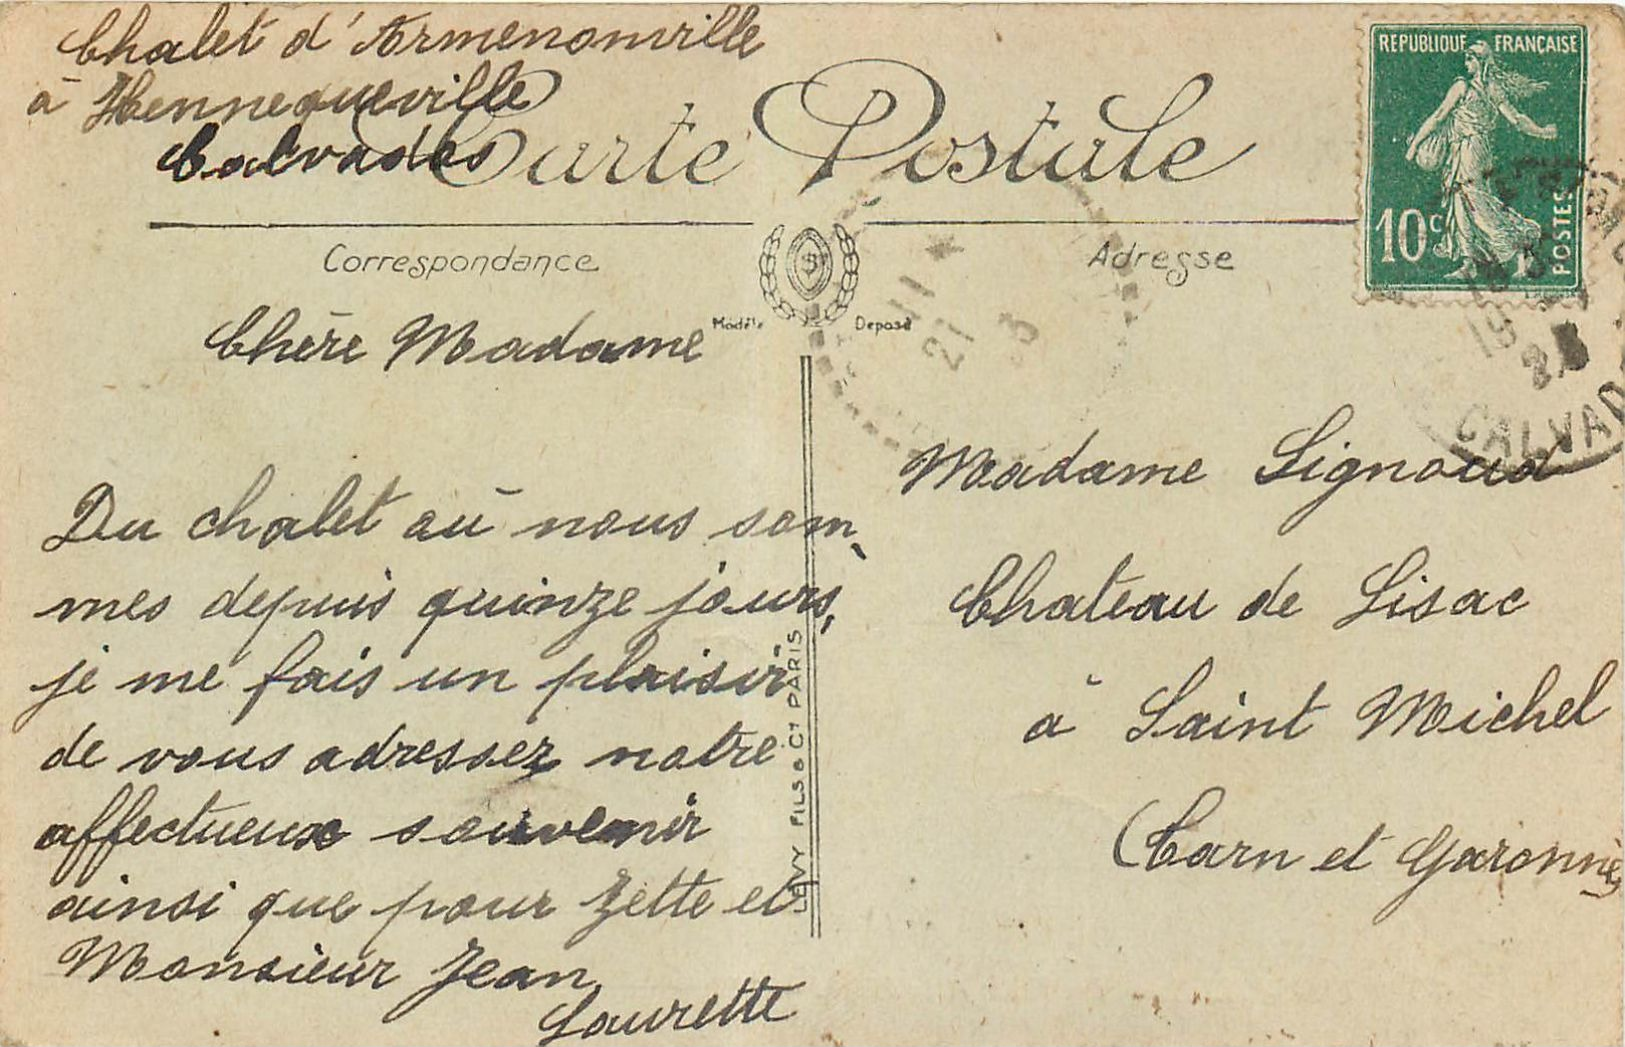 Chalet d'Armenonville
à Hennequeville
Calvados
Carte Postale
REPUBLIQUE FRANÇAISE
10c
POSTES
Correspondance
Adresse
Modèle Déposé
CALVAD
Chère Madame
Du chalet où nous som
mes depuis quinze jours,
je me fais un plaisir
de vous adresser notre
affectueux souvenir
ainsi que pour Zette et
Monsieur Jean
Laurette
LEVY FILS & Cie PARIS
Madame Lignoud
Chateau de Lisac
à Saint Michel
(Tarn et Garonne)